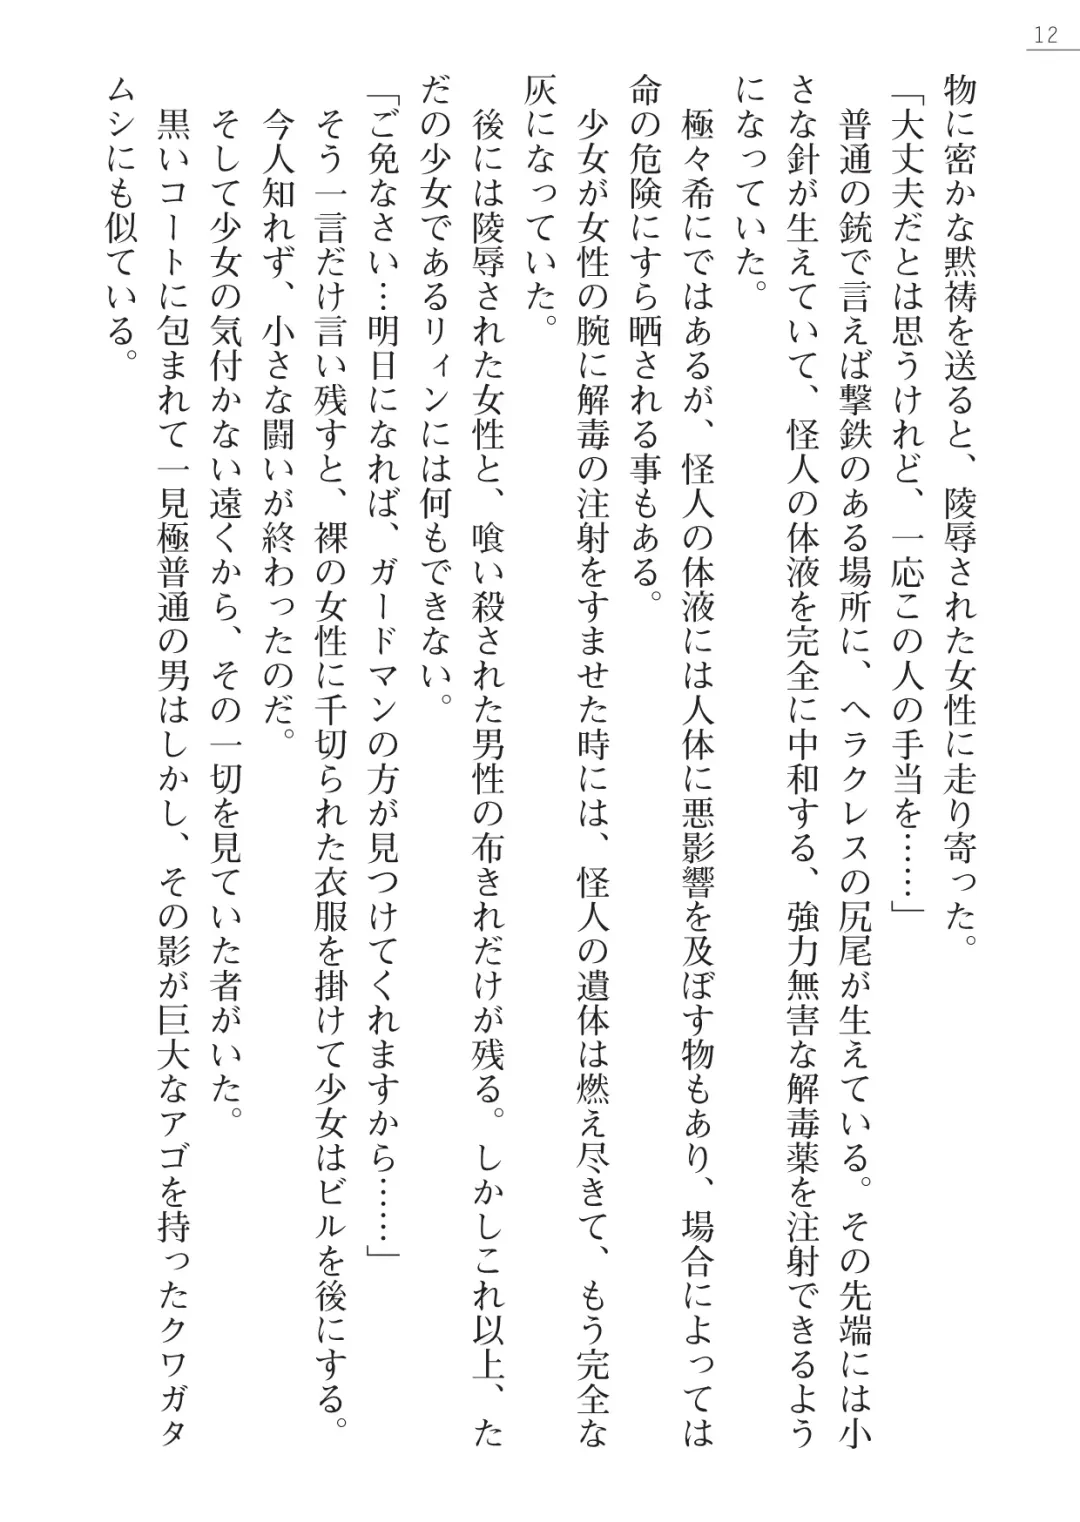 12
物に密かな黙祷を送ると、陵辱された女性に走り寄った。
「大丈夫だとは思うけれど、一応この人の手当を……」
普通の銃で言えば撃鉄のある場所に、ヘラクレスの尻尾が生えている。その先端には小
さな針が生えていて、怪人の体液を完全に中和する、強力無害な解毒薬を注射できるよう
になっていた。
極々希にではあるが、怪人の体液には人体に悪影響を及ぼす物もあり、場合によっては
命の危険にすら晒される事もある。
少女が女性の腕に解毒の注射をすませた時には、怪人の遺体は燃え尽きて、もう完全な
灰になっていた。
後には陵辱された女性と、喰い殺された男性の布きれだけが残る。しかしこれ以上、た
だの少女であるリィンには何もできない。
「ご免なさい…明日になれば、ガードマンの方が見つけてくれますから……」
そう一言だけ言い残すと、裸の女性に千切られた衣服を掛けて少女はビルを後にする。
今人知れず、小さな闘いが終わったのだ。
そして少女の気付かない遠くから、その一切を見ていた者がいた。
黒いコートに包まれて一見極普通の男はしかし、その影が巨大なアゴを持ったクワガタ
ムシにも似ている。